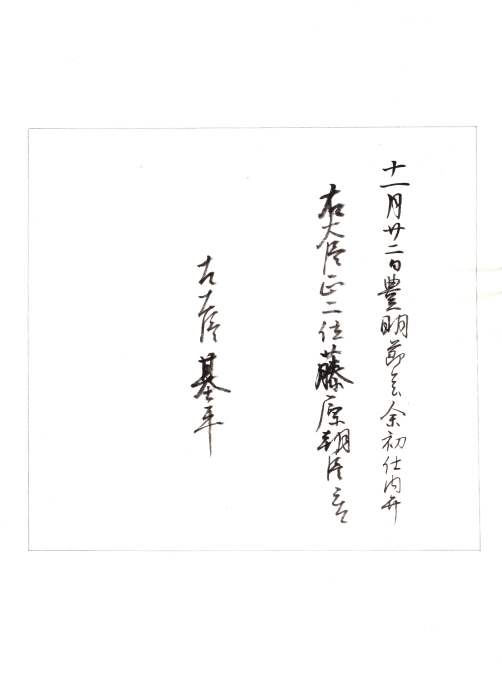 十一月廿二日豊明節会余初仕内弁
右大臣正二位藤原朝臣
右大臣基平